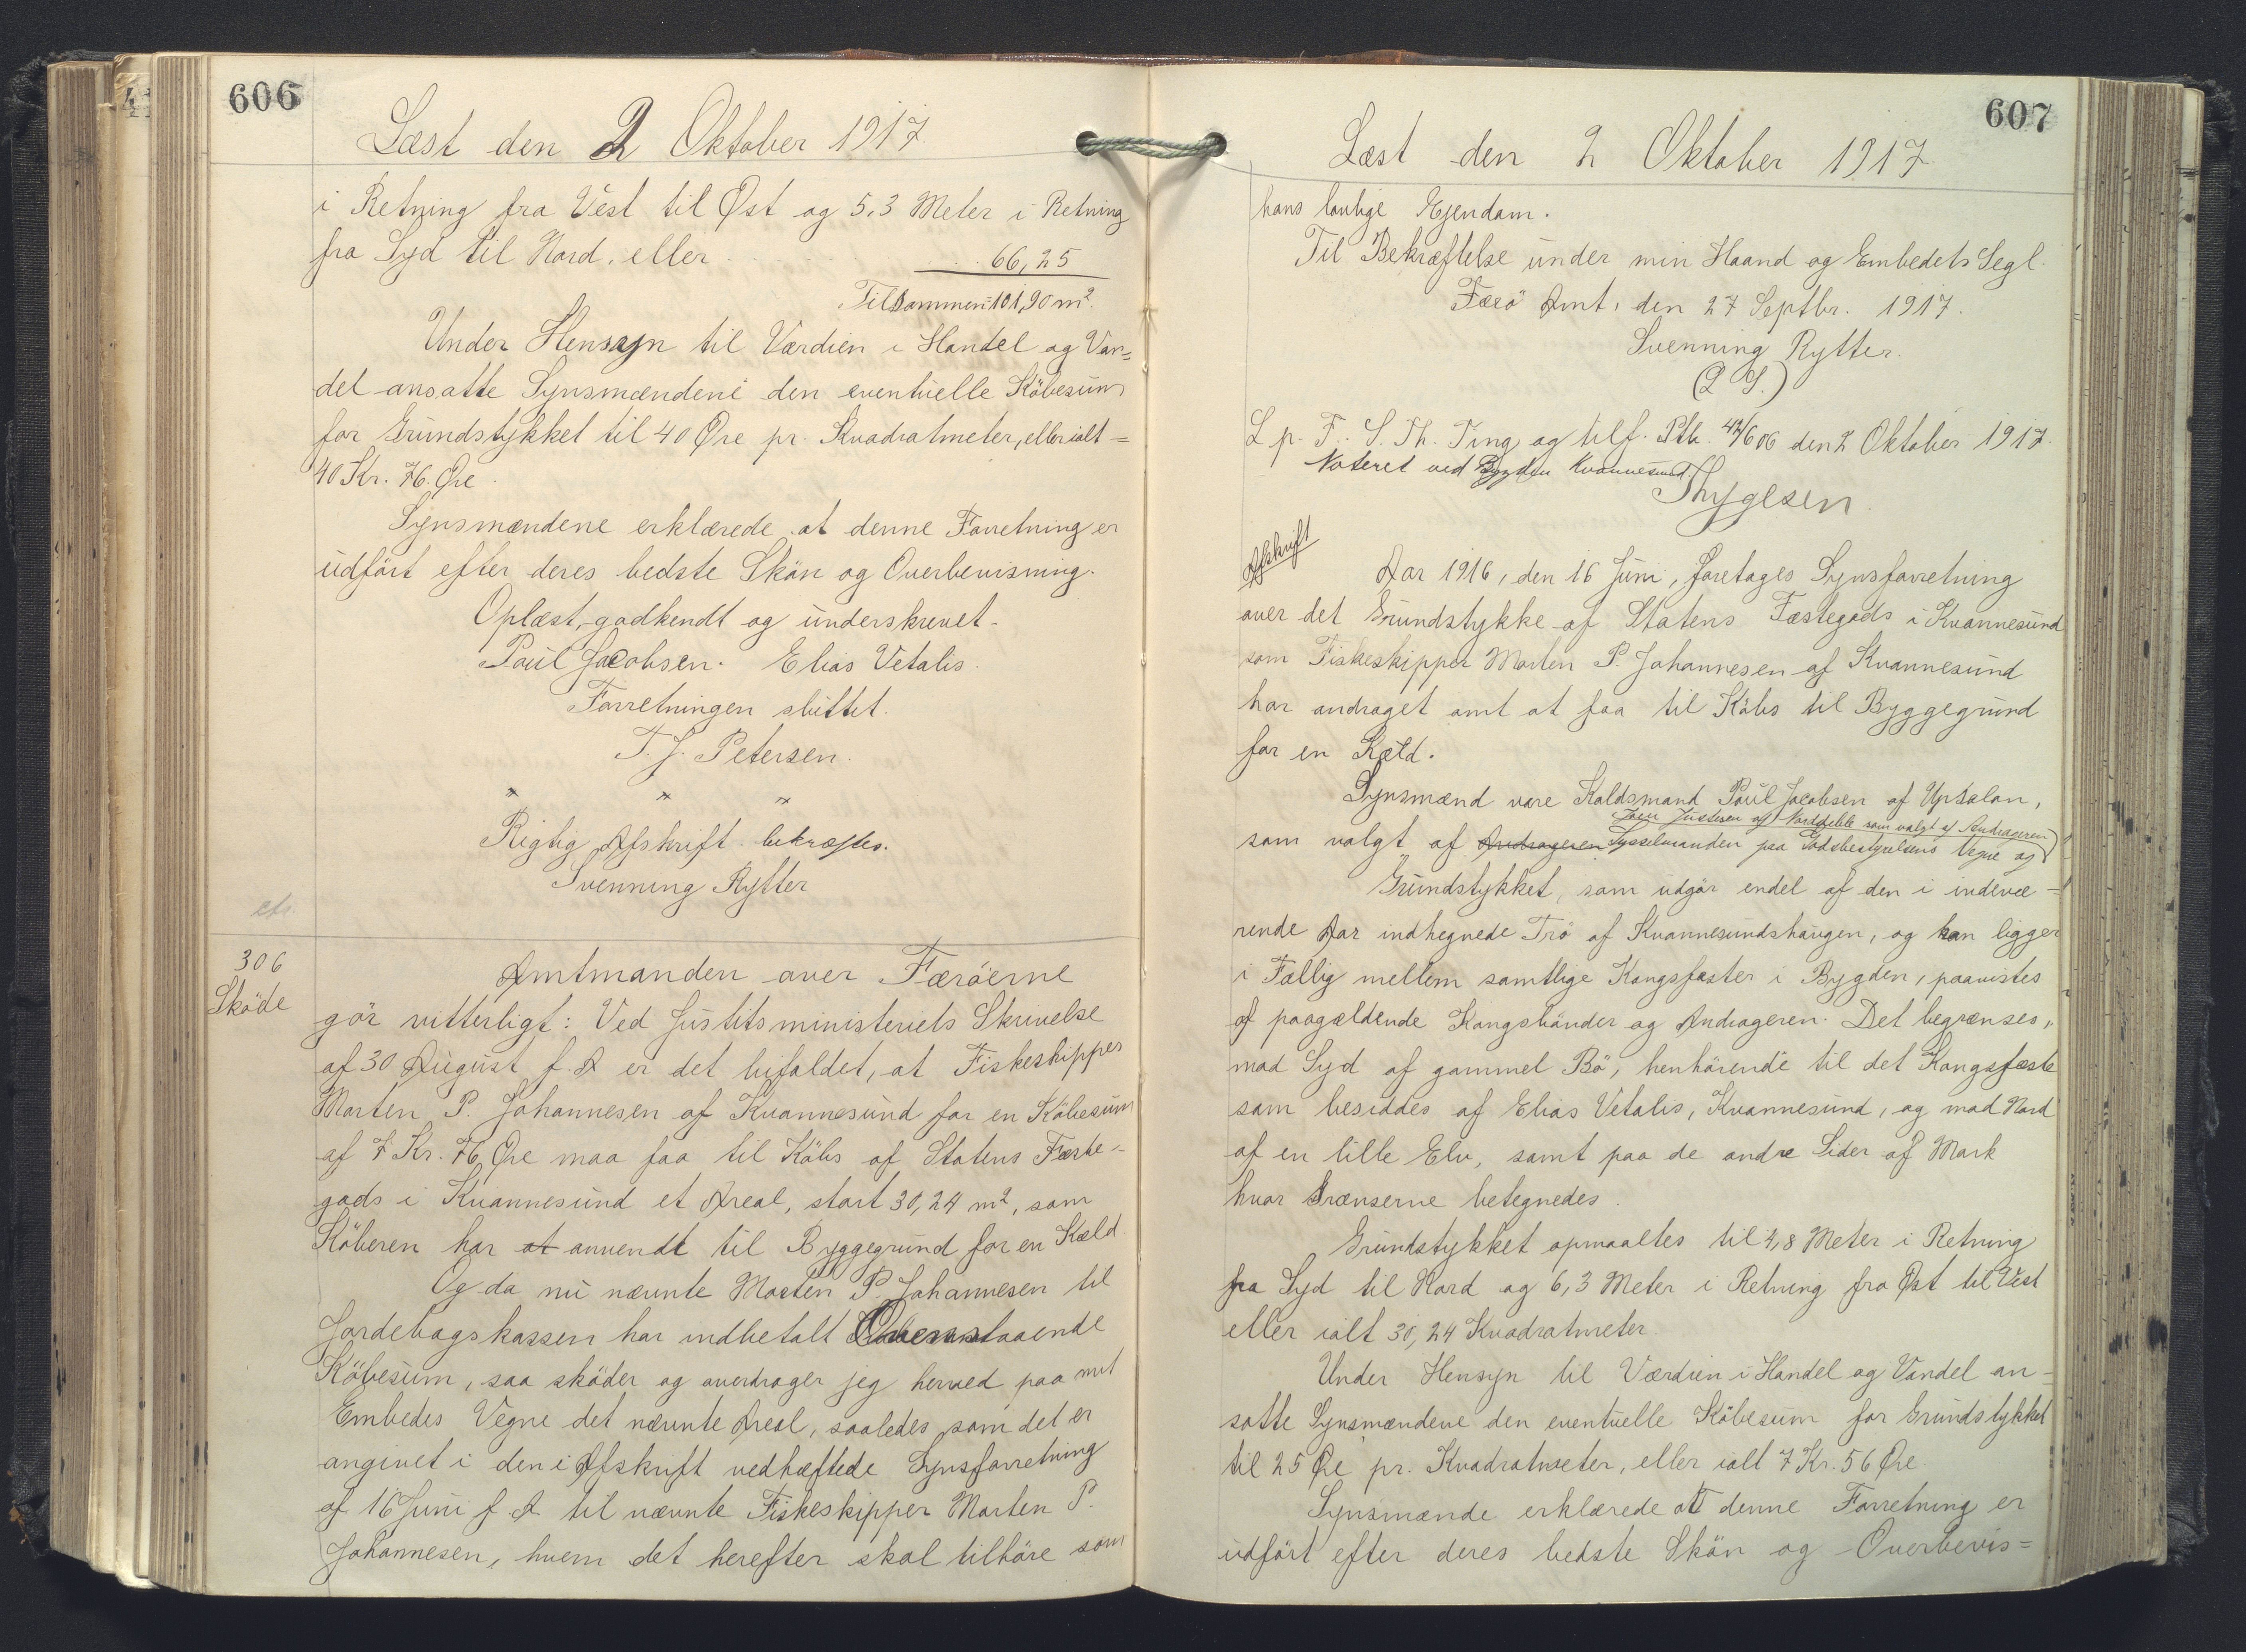 606
Læst den 2 Oktober 1917.
i Retning fra Vest til Øst og 5,3 Meter i Retning
fra Syd til Nord, eller 66,25
Tilsammen 101,90 m².
Under Hensyn til Værdien i Handel og Van=
del ansatte Synsmændene den eventuelle Köbesum
for Grundstykket til 40 Øre pr. Kvadratmeter, eller ialt =
40 Kr. 76 Øre.
Synsmændene erklærede at denne Forretning er
udfört efter deres bedste Skön og Overbevisning.
Oplæst, godkendt og underskrevet.
Poul Jacobsen. Elias Vetalis.
Forretningen sluttet.
T. J. Petersen.
Rigtig Afskrift bekræftes.
Svenning Rytter
306
Sköde
Amtmanden over Færöerne
gör vitterligt: Ved Justitsministeriets Skrivelse
af 30 August f. A er det bifaldet, at Fiskeskipper
Morten P. Johannesen af Kvannesund for en Köbesum
af 7 Kr. 76 Øre maa faa til Köbs af Statens Fæste-
gods i Kvannesund et Areal, stort 30,24 m², som
Köberen har at anvendt til Byggegrund for en Kæld
Og da nu nævnte Morten P. Johannesen til
Jordebogskassen har indbetalt Ovenstaaende
Köbesum, saa sköder og overdrager jeg herved paa mit
Embedes Vegne det nævnte Areal, saaledes som det er
angivet i den i Afskrift vedhæftede Synsforretning
af 16 Juni f A til nævnte Fiskeskipper Morten P.
Johannesen, hvem det herefter skal tilhöre som
607
Læst den 2 Oktober 1917
hans lovlige Ejendom.
Til Bekræftelse under min Haand og Embedets Segl.
Færö Amt, den 27 Septbr. 1917.
Svenning Rytter.
(L S.)
L p. F. S. Th. Ting og tilf. Ptb. 42/606 den 2 Oktober 1917.
Noteret ved Bygden Kvannesund.
Thygesen.
Afskrift
Aar 1916, den 16 Juni, foretages Synsforretning
over det Grundstykke af Statens Fæstegods i Kvannesund
som Fiskeskipper Morten P. Johannesen af Kvannesund
har andraget omt at faa til Köbs til Byggegrund
for en Kæld.
Synsmænd vare Kaldsmand Poul Jacobsen af Upsalon,
Joen Justesen af Norddeble som valgt af Andrageren
som valgt af Andrageren Sysselmanden paa Godsbestyrelsens Vegne og
Grundstykket, som udgör endel af den i indevæ=
rende Aar indhegnede Trö af Kvannesundshaugen, og kan ligger
i Fællig mellem samtlige Kongsfæster i Bygden, paavistes
af paagældende Kongsbönder og Andrageren. Det begrænses,
mod Syd af gammel Bö, henhörende til det Kongsfæste
som besiddes af Elias Vetalis, Kvannesund, og mod Nord
af en lille Elv, samt paa de andre Sider af Mark
hvor Grænserne betegnedes.
Grundstykket opmaaltes til 4,8 Meter i Retning
fra Syd til Nord og 6,3 Meter i Retning fra Øst til Vest
eller ialt 30,24 Kvadratmeter
Under Hensyn til Værdien i Handel og Vandel an-
satte Synsmændene den eventuelle Köbesum for Grundstykket
til 25 Øre pr. Kvadratmeter, eller ialt 7 Kr. 56 Øre.
Synsmænde erklærede att denne Forretning er
udfört efter deres bedste Skön og Overbevis=